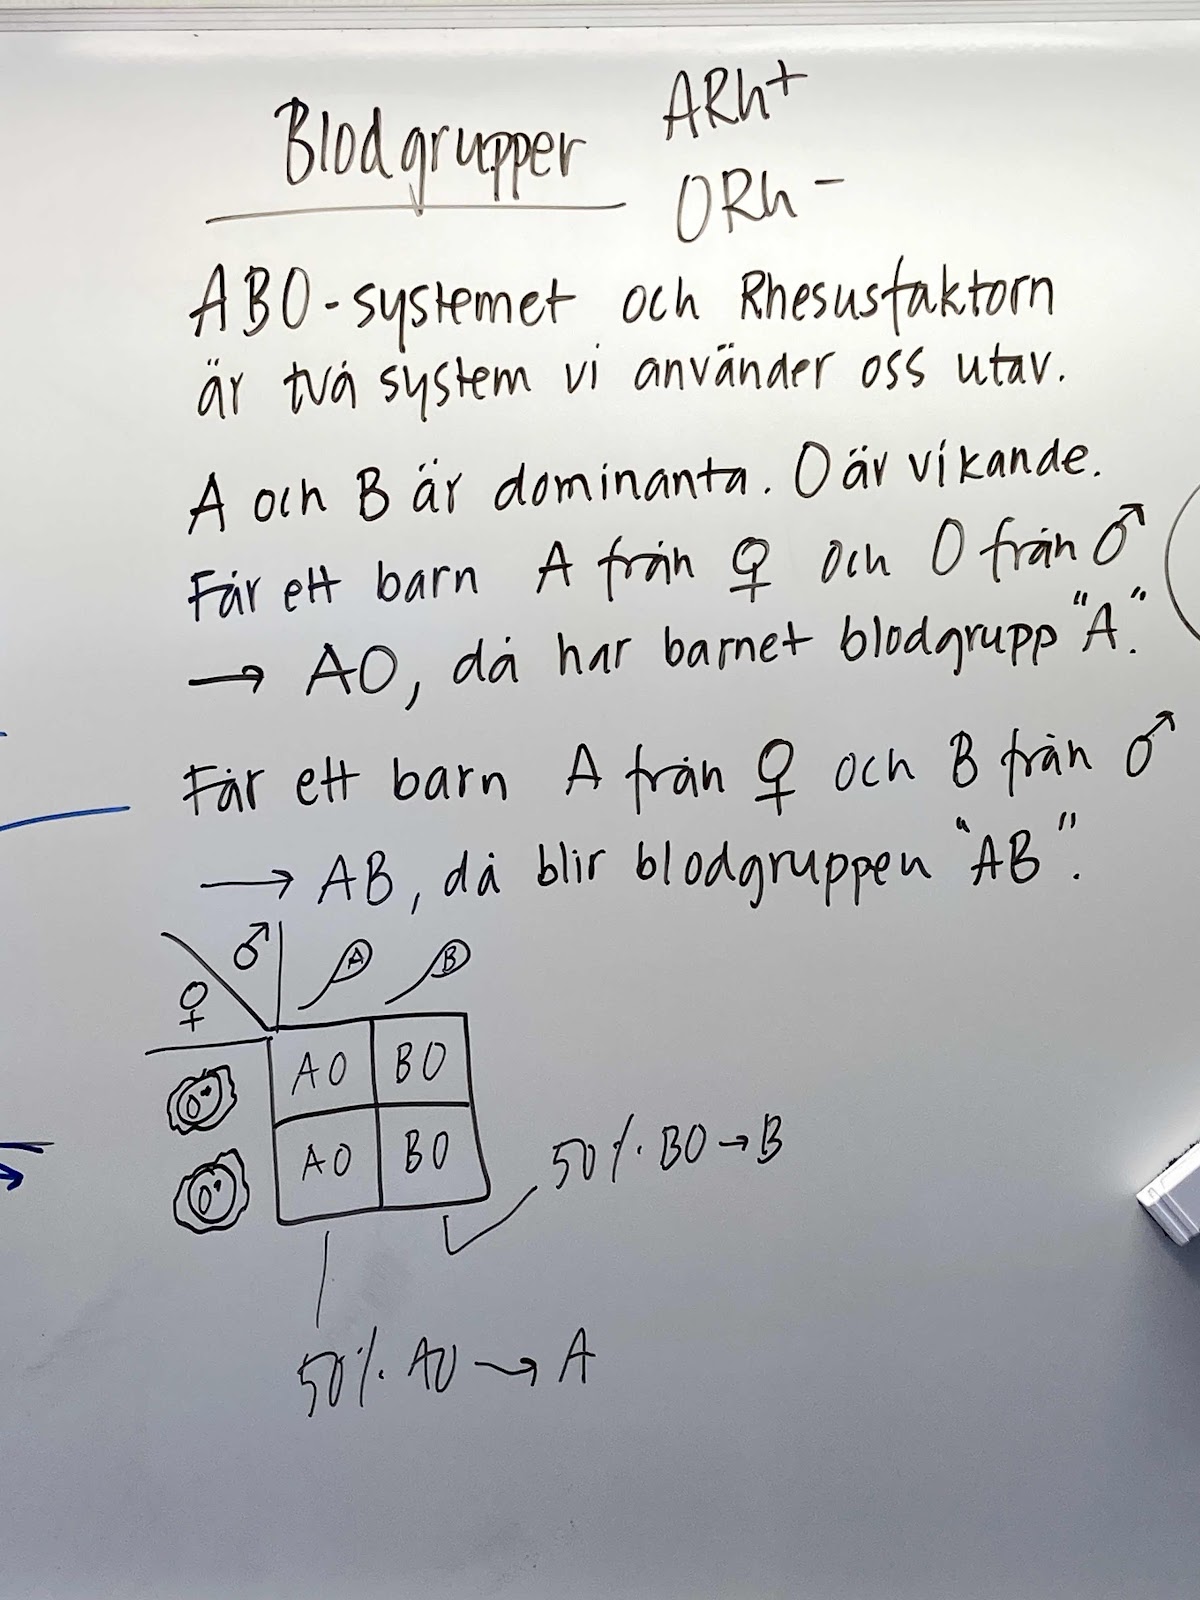 Blodgrupper
ARh+
ORh-
ABO-systemet och Rhesusfaktorn
är två system vi använder oss utav.
A och B är dominanta. O är vikande.
Får ett barn A från ♀ och O från ♂
→ AO, då har barnet blodgrupp "A".
Får ett barn A från ♀ och B från ♂
→ AB, då blir blodgruppen "AB".
♂ A B
♀
O AO BO
O AO BO
50% BO → B
50% AO → A